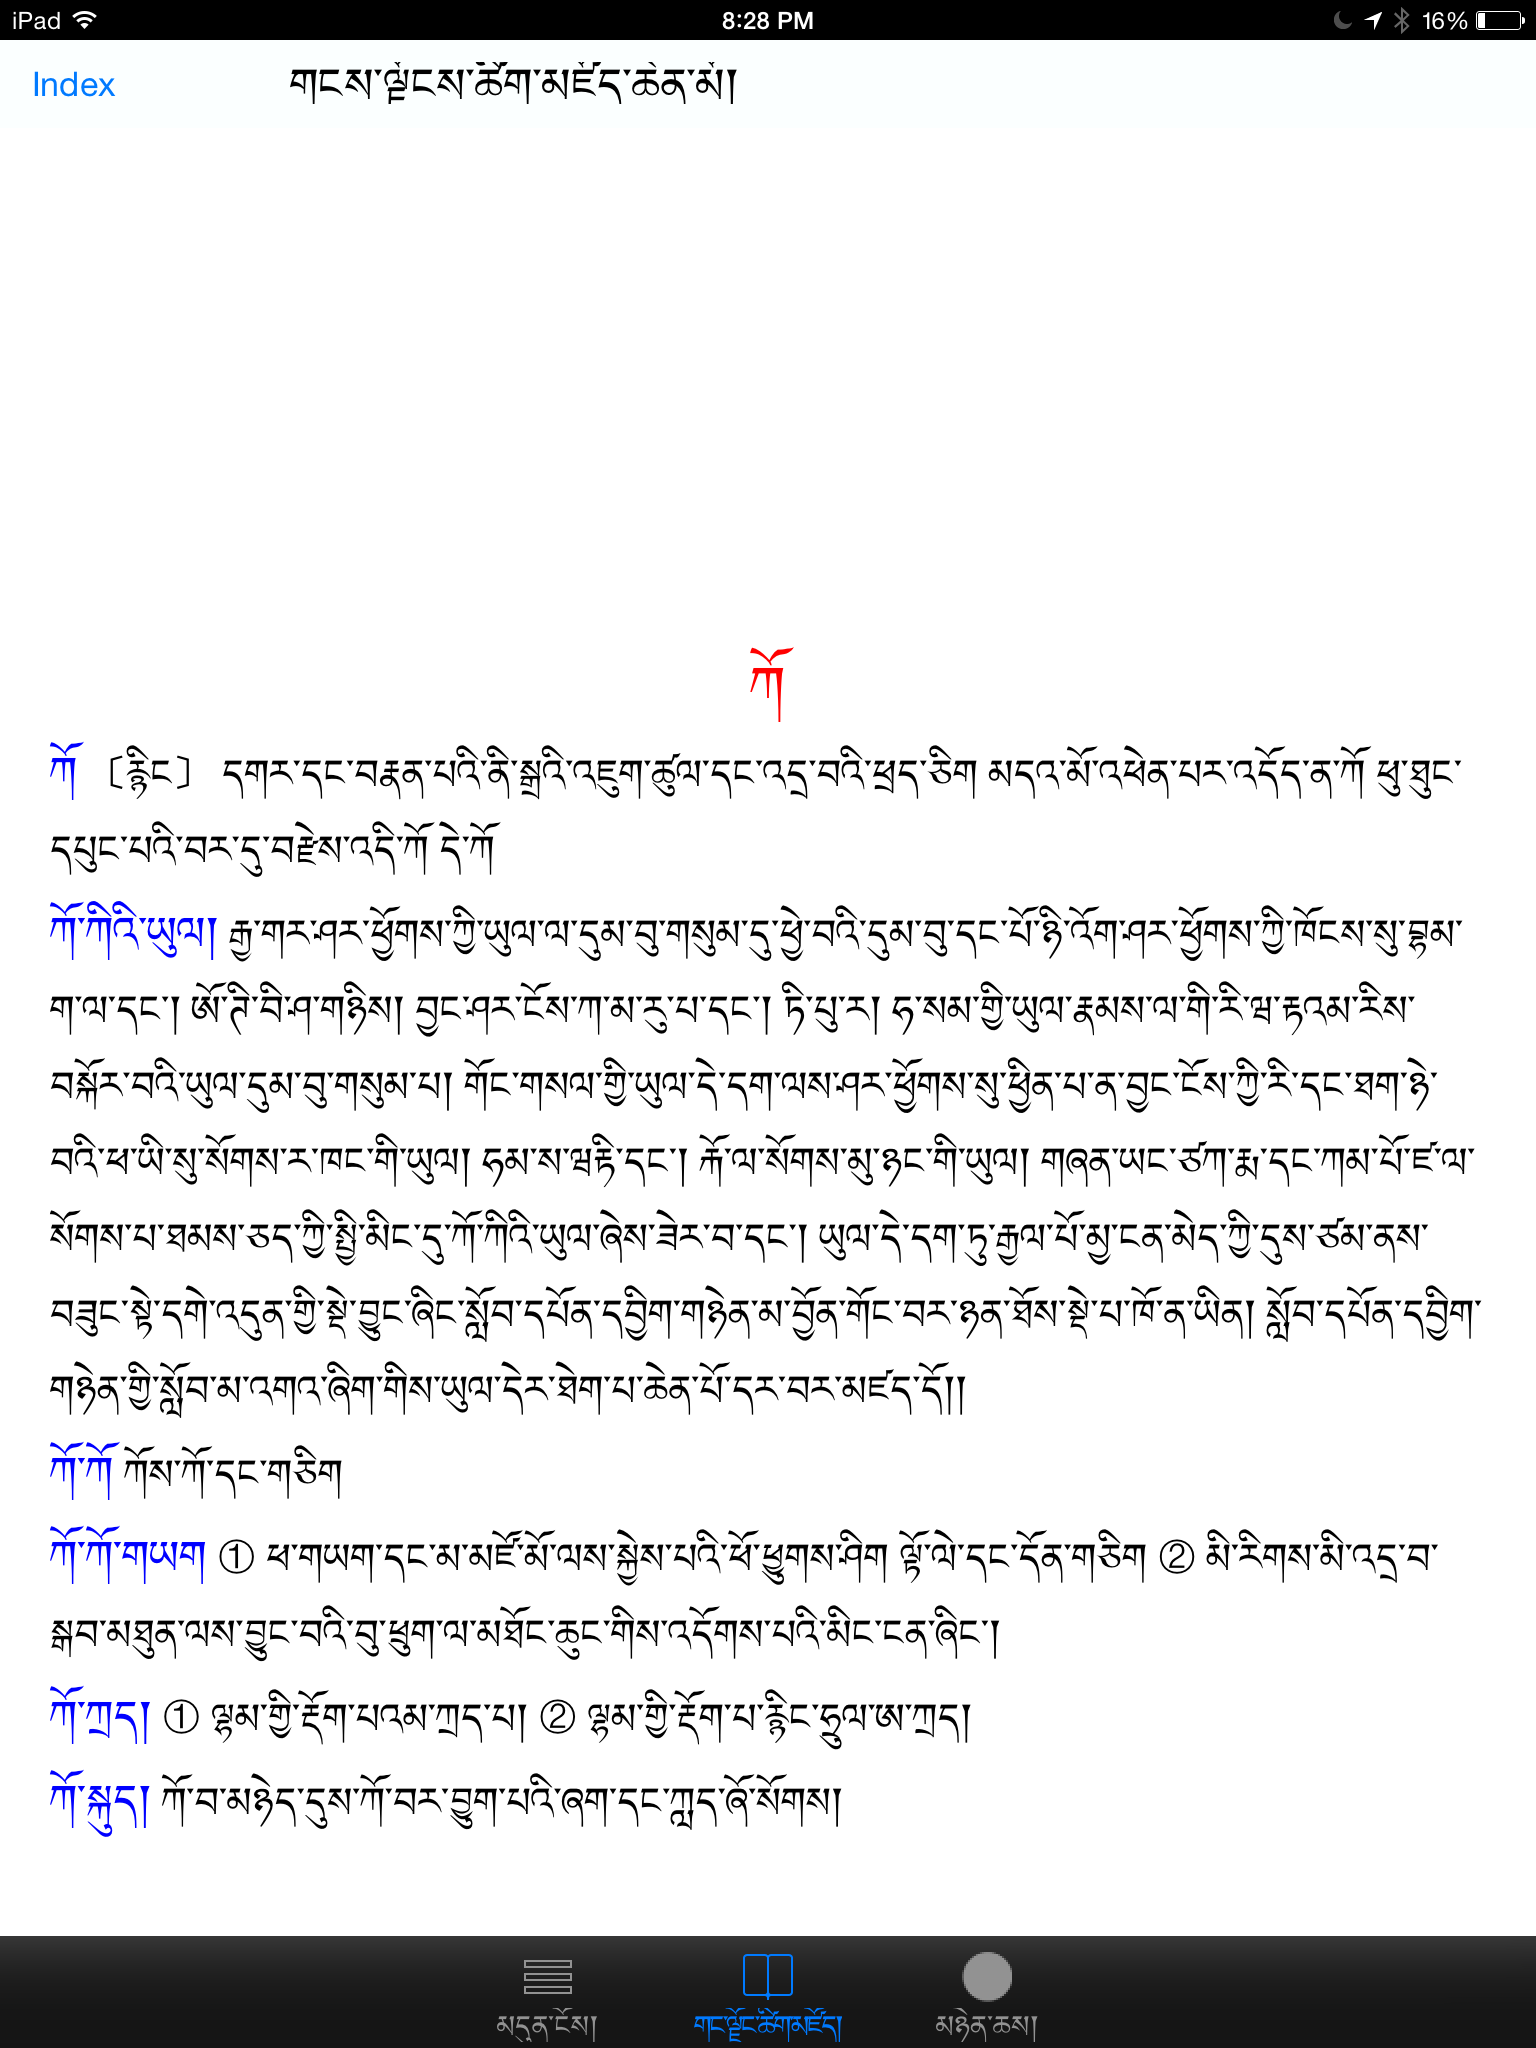 iPad 8:28 PM 16%
Index གངས་ལྗོངས་ཚིག་མཛོད་ཆེན་མོ།
ཀོ
ཀོ 〔རྙིང〕 དགར་དང་བརྣན་པའི་ནི་སྒྲའི་འཇུག་ཚུལ་དང་འདྲ་བའི་ཕྲད་ཅིག མདའ་མོ་འཕེན་པར་འདོད་ན་ཀོ ཕུ་ཐུང་
དཔུང་པའི་བར་དུ་བརྫེས་འདི་ཀོ དེ་ཀོ
ཀོ་ཀིའི་ཡུལ། རྒྱ་གར་ཤར་ཕྱོགས་ཀྱི་ཡུལ་ལ་དུམ་བུ་གསུམ་དུ་ཕྱེ་བའི་དུམ་བུ་དང་པོ་ཉི་འོག་ཤར་ཕྱོགས་ཀྱི་ཁོངས་སུ་བྷྷམ་
ག་ལ་དང་། ཨོ་ཊི་བི་ཤ་གཉིས། བྱང་ཤར་ངོས་ཀ་མ་རུ་པ་དང་། ཏི་པུ་ར། ཧ་སམ་གྱི་ཡུལ་རྣམས་ལ་གི་རི་ཝ་རྟའམ་རིས་
བསྐོར་བའི་ཡུལ་དུམ་བུ་གསུམ་པ། གོང་གསལ་གྱི་ཡུལ་དེ་དག་ལས་ཤར་ཕྱོགས་སུ་ཕྱིན་པ་ན་བྱང་ངོས་ཀྱི་རི་དང་ཐག་ཉེ་
བའི་ཕ་ཡི་སུ་སོགས་ར་ཁང་གི་ཡུལ། ཧམ་ས་ཝརྟི་དང་། རྐོ་ལ་སོགས་མུ་ཉང་གི་ཡུལ། གཞན་ཡང་ཙཀ་རྨ་དང་ཀམ་པོ་ཛ་ལ་
སོགས་པ་ཐམས་ཅད་ཀྱི་སྤྱི་མིང་དུ་ཀོ་ཀིའི་ཡུལ་ཞེས་ཟེར་བ་དང་། ཡུལ་དེ་དག་ཏུ་རྒྱལ་པོ་མྱ་ངན་མེད་ཀྱི་དུས་ཙམ་ནས་
བཟུང་སྟེ་དགེ་འདུན་གྱི་སྡེ་བྱུང་ཞིང་སློབ་དཔོན་དབྱིག་གཉེན་མ་བྱོན་གོང་བར་ཉན་ཐོས་སྡེ་པ་ཁོ་ན་ཡིན། སློབ་དཔོན་དབྱིག་
གཉེན་གྱི་སློབ་མ་འགའ་ཞིག་གིས་ཡུལ་དེར་ཐེག་པ་ཆེན་པོ་དར་བར་མཛད་དོ།།
ཀོ་ཀོ ཀོས་ཀོ་དང་གཅིག
ཀོ་ཀོ་གཡག ① ཕ་གཡག་དང་མ་མཛོ་མོ་ལས་སྐྱེས་པའི་ཕོ་ཕྱུགས་ཤིག ལྟོ་ལེ་དང་དོན་གཅིག ② མི་རིགས་མི་འདྲ་བ་
སྒབ་མཐུན་ལས་བྱུང་བའི་བུ་ཕྲུག་ལ་མཐོང་ཆུང་གིས་འདོགས་པའི་མིང་ངན་ཞིང་།
ཀོ་ཀྲད། ① ལྷམ་གྱི་རྡོག་པའམ་ཀྲད་པ། ② ལྷམ་གྱི་རྡོག་པ་རྙིང་ཧྲུལ་ཨ་ཀྲད།
ཀོ་སྐུད། ཀོ་བ་མཉེད་དུས་ཀོ་བར་བྱུག་པའི་ཞག་དང་ཀླད་ཞོ་སོགས།
མདུན་ངོས། གངས་ལྗོངས་ཚིག་མཛོད། མཉེན་ཆས།